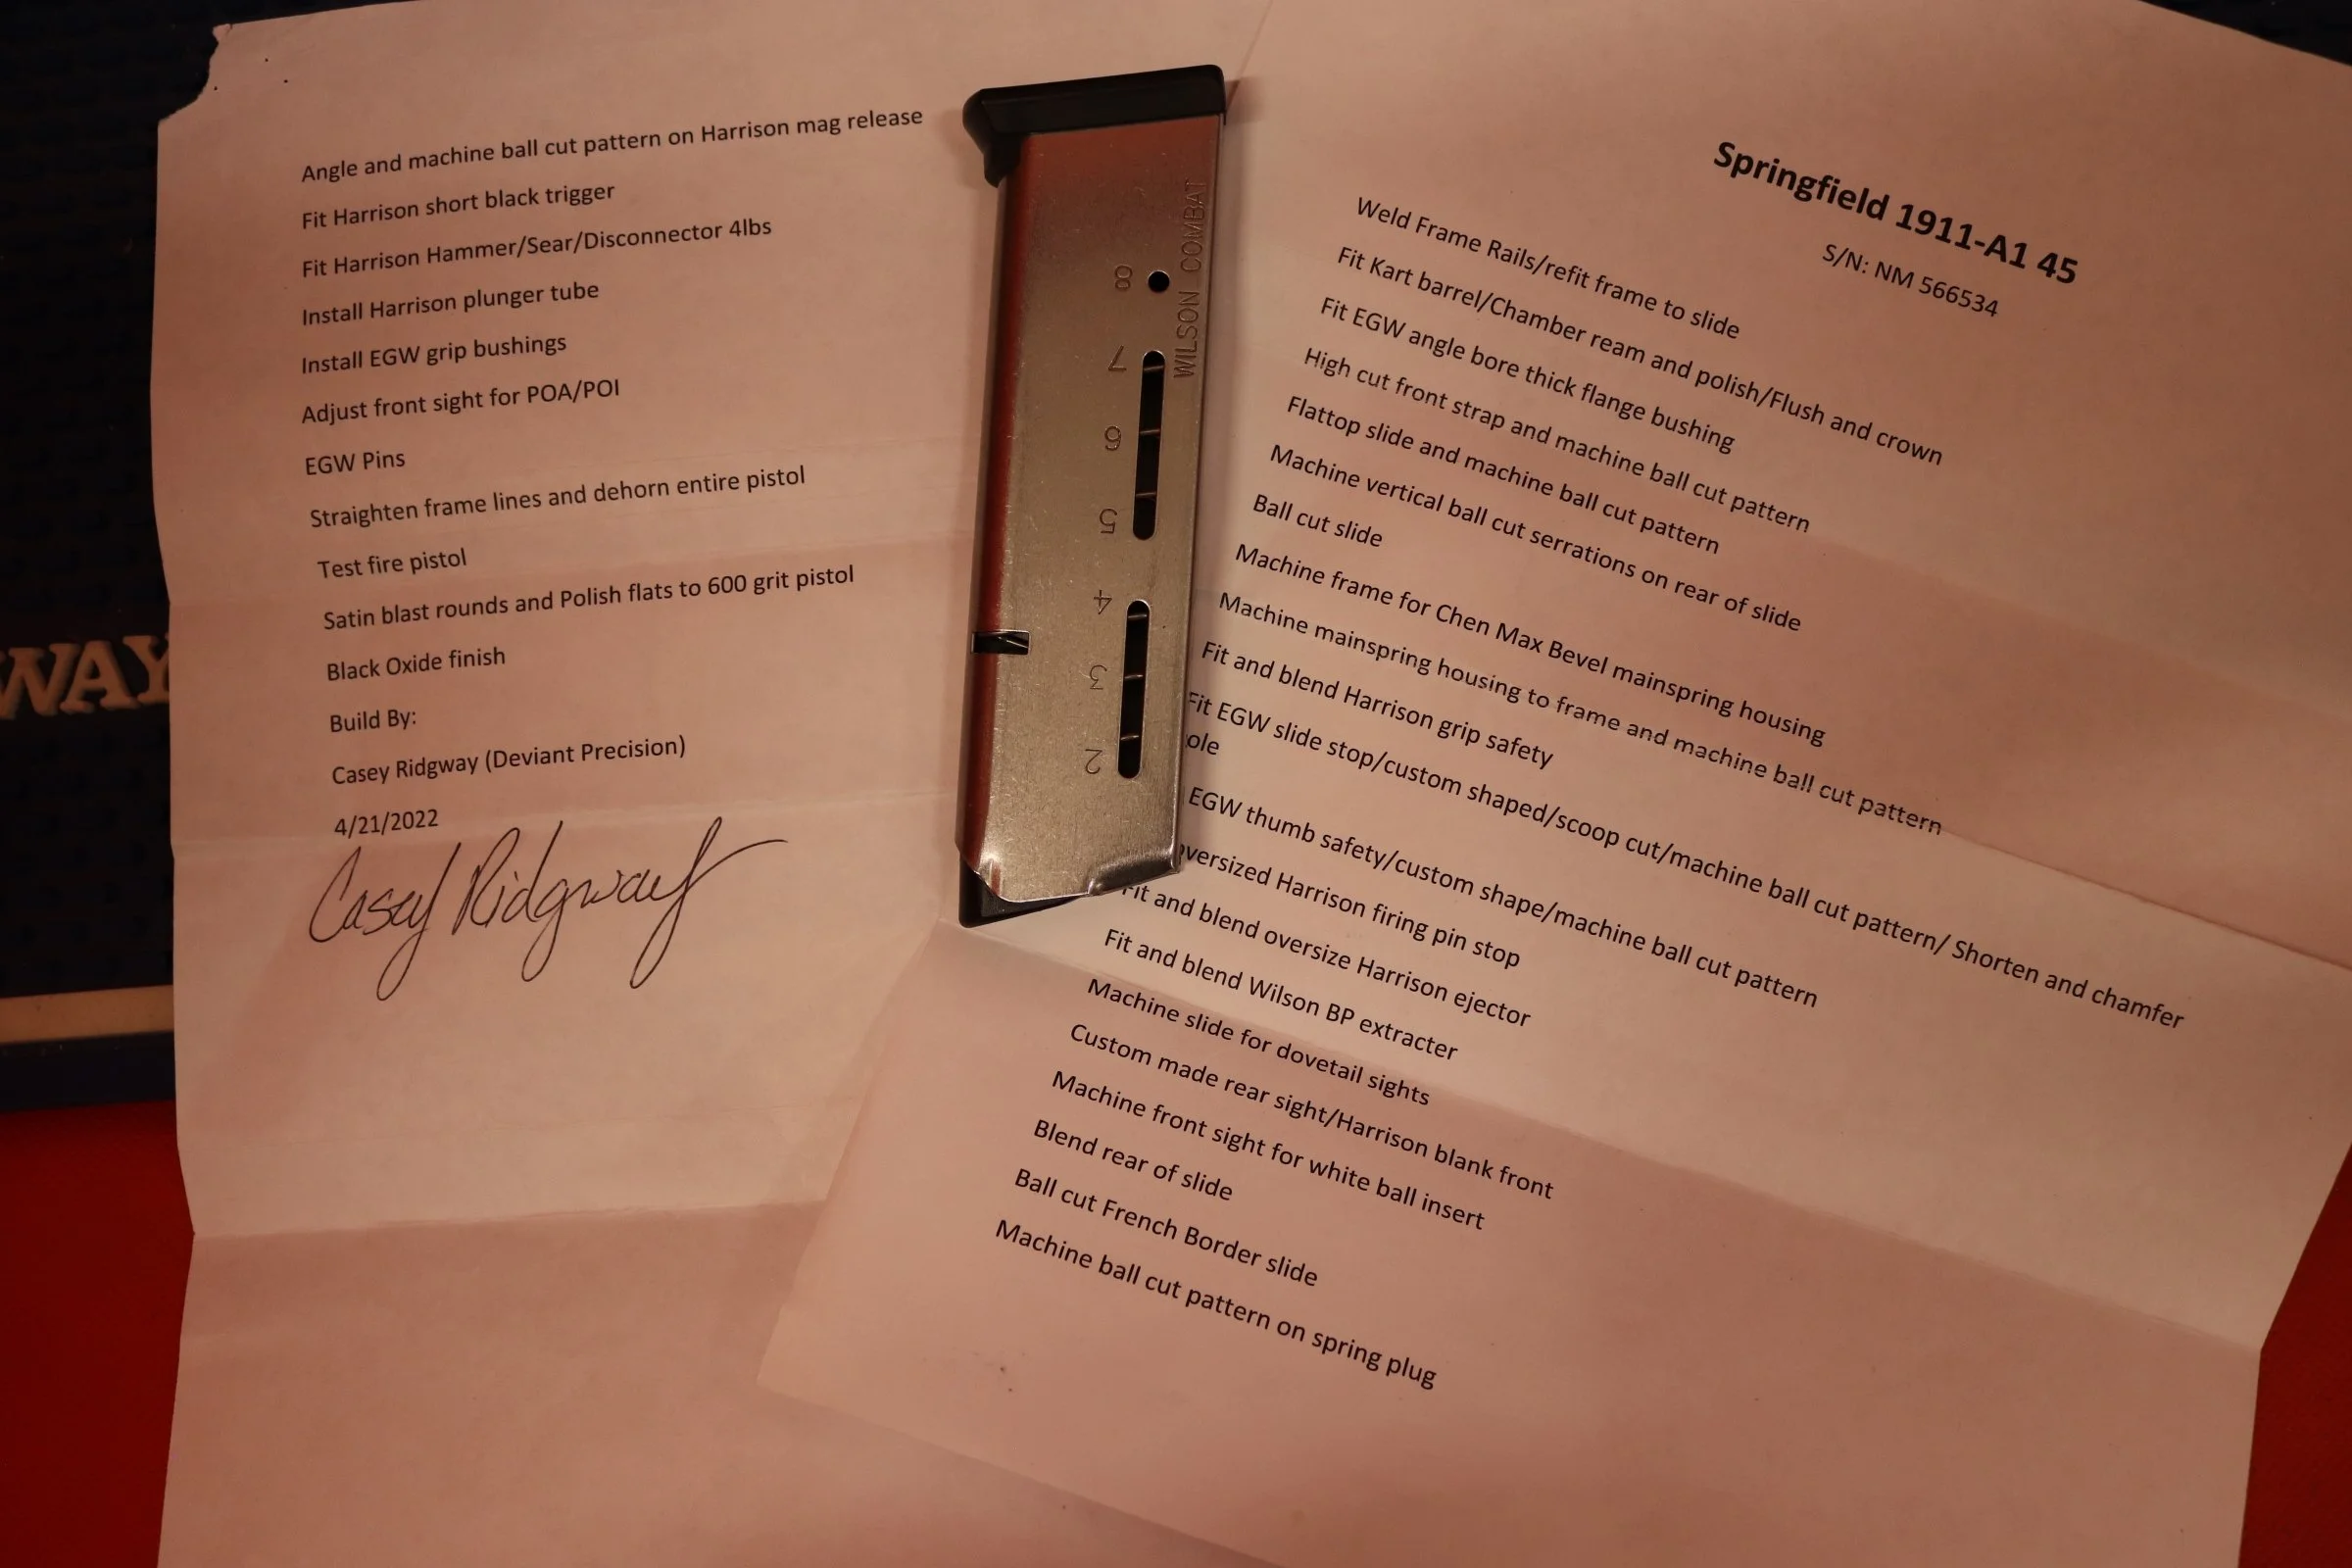 Angle and machine ball cut pattern on Harrison mag release
Fit Harrison short black trigger
Fit Harrison Hammer/Sear/Disconnector 4lbs
Install Harrison plunger tube
Install EGW grip bushings
Adjust front sight for POA/POI
EGW Pins
Straighten frame lines and dehorn entire pistol
Test fire pistol
Satin blast rounds and Polish flats to 600 grit pistol
Black Oxide finish
Build By:
Casey Ridgway (Deviant Precision)
4/21/2022
Casey Ridgway
WAY
WILSON COMBAT
8
7
6
5
4
3
2
Springfield 1911-A1 45
S/N: NM 566534
Weld Frame Rails/refit frame to slide
Fit Kart barrel/Chamber ream and polish/Flush and crown
Fit EGW angle bore thick flange bushing
High cut front strap and machine ball cut pattern
Flattop slide and machine ball cut pattern
Machine vertical ball cut serrations on rear of slide
Ball cut slide
Machine frame for Chen Max Bevel mainspring housing
Machine mainspring housing to frame and machine ball cut pattern
Fit and blend Harrison grip safety
Fit EGW slide stop/custom shaped/scoop cut/machine ball cut pattern/ Shorten and chamfer
ole
EGW thumb safety/custom shape/machine ball cut pattern
oversized Harrison firing pin stop
Fit and blend oversize Harrison ejector
Fit and blend Wilson BP extracter
Machine slide for dovetail sights
Custom made rear sight/Harrison blank front
Machine front sight for white ball insert
Blend rear of slide
Ball cut French Border slide
Machine ball cut pattern on spring plug